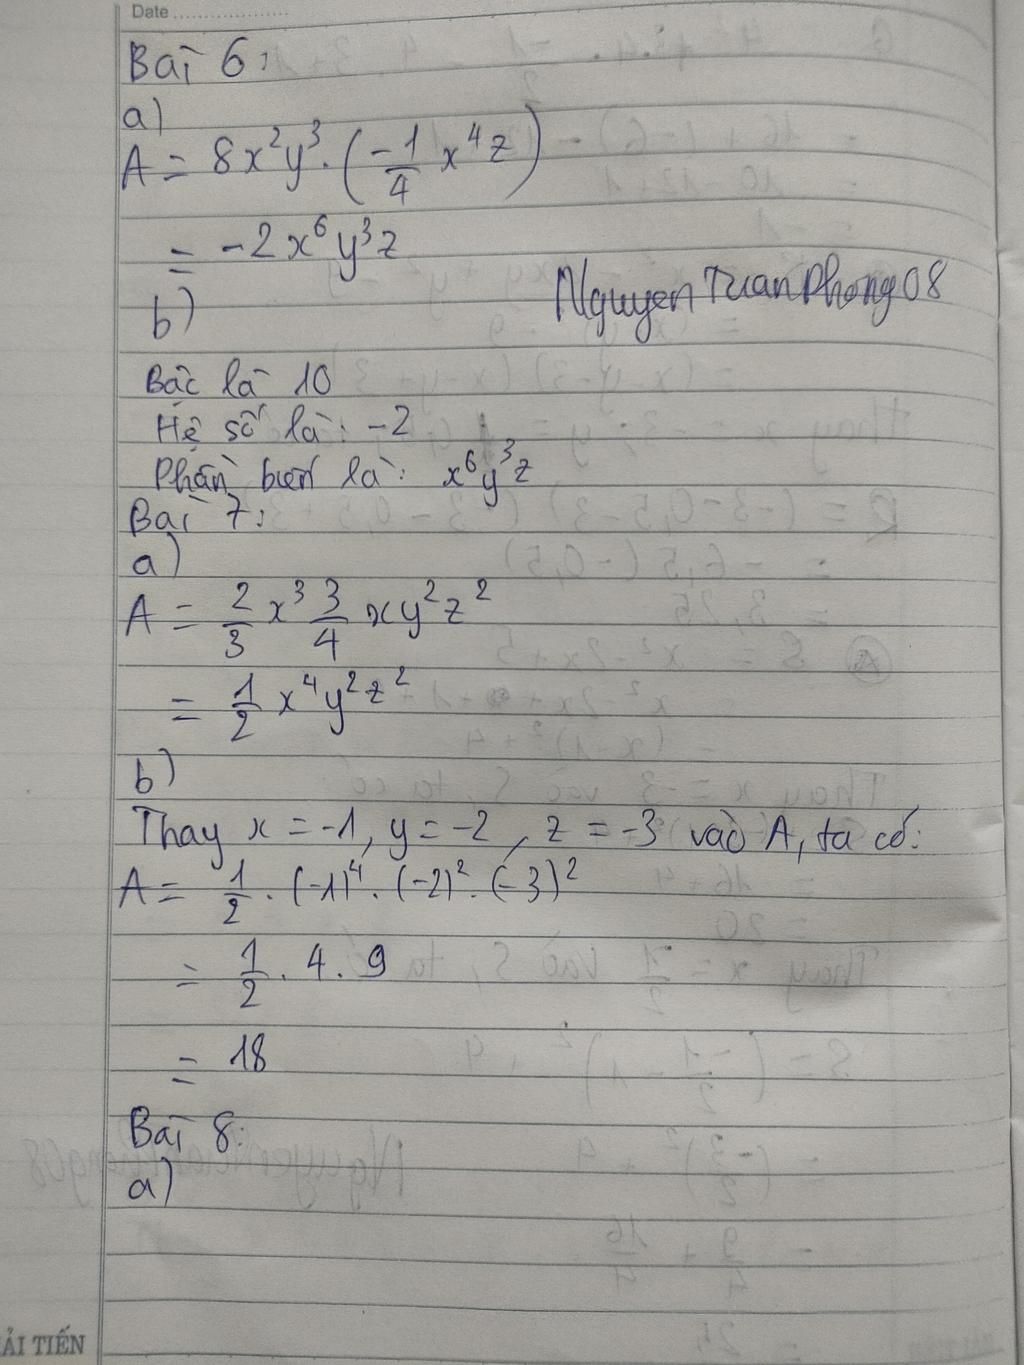 Date
Bài 6:
a)
A = 8x²y³ . (-1/4 x⁴z)
= -2x⁶y³z
b)
NguyenTuanPhong08
Bậc là 10
Hệ số là: -2
Phần biến là: x⁶y³z
Bài 7:
a)
A = 2/3 x³ 3/4 xy²z²
= 1/2 x⁴y²z²
b)
Thay x = -1, y = -2, z = -3 vào A, ta có:
A = 1/2 . (-1)⁴ . (-2)² . (-3)²
= 1/2 . 4 . 9
= 18
Bài 8:
a)
ẢI TIẾN